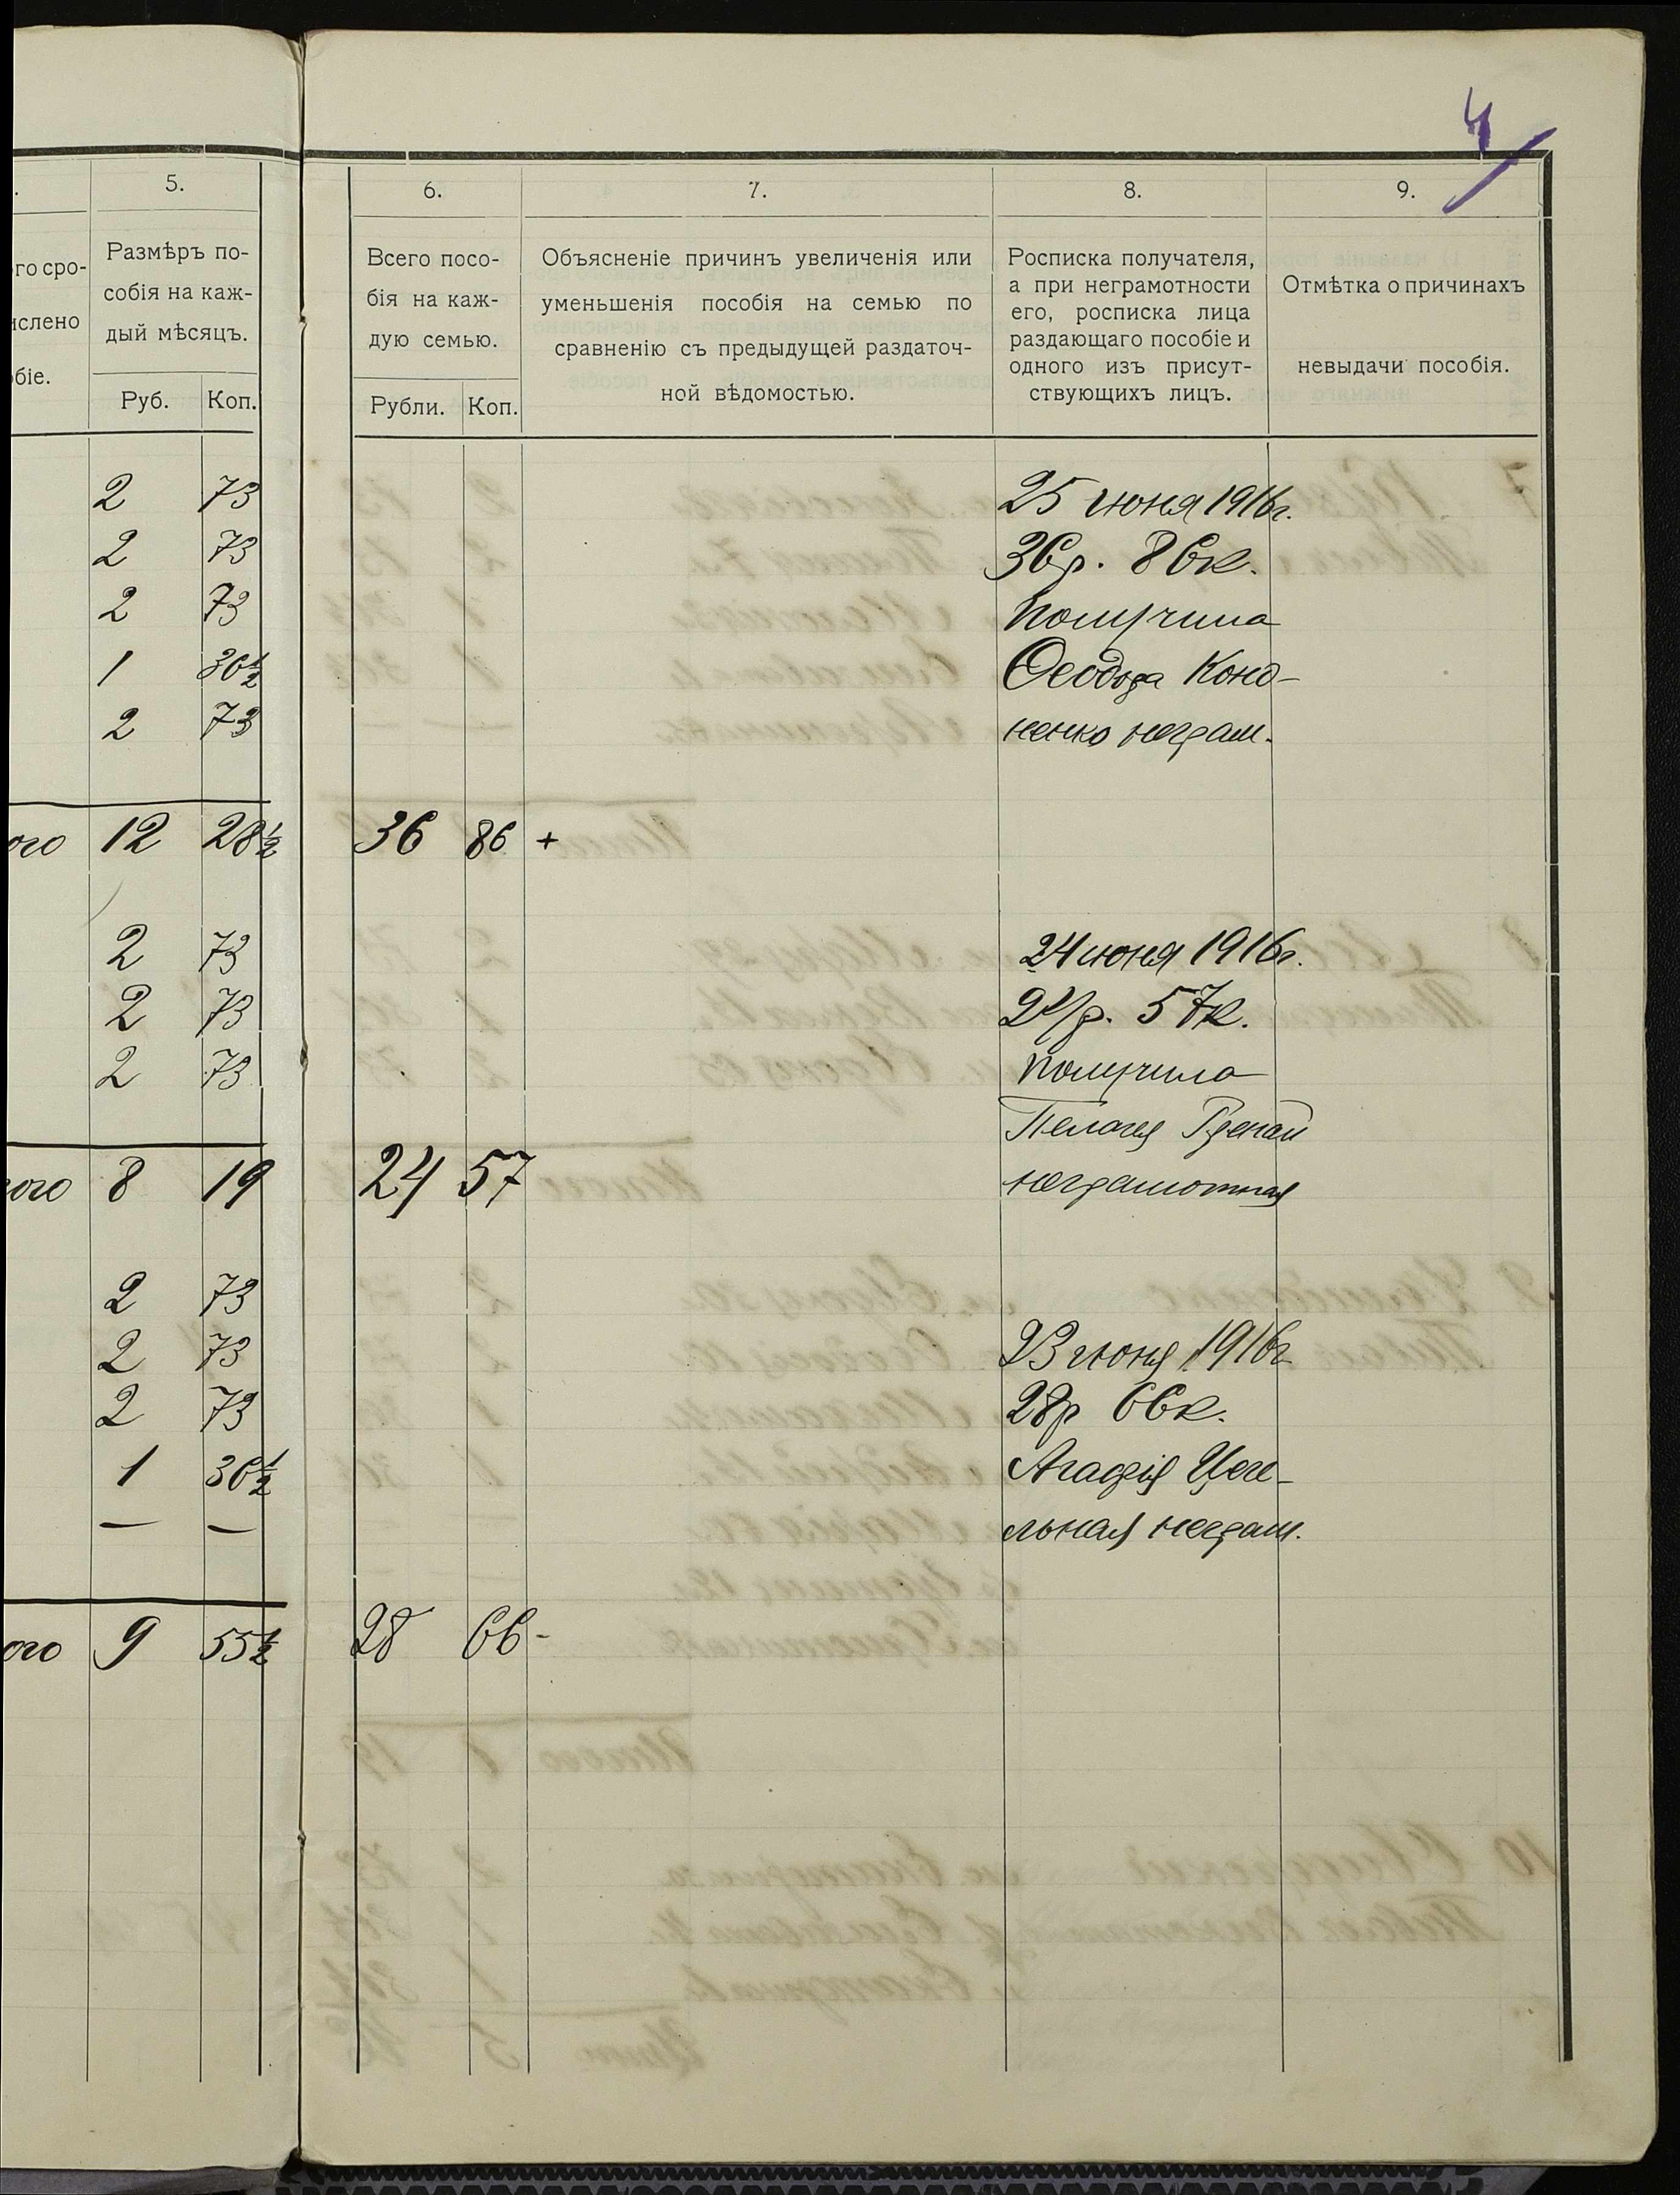 4
5. 6. 7. 8. 9.
го сро-
ислено
біе.
Размѣръ по-
собія на каж-
дый мѣсяцъ.
Руб. Коп.
Всего посо-
бія на каж-
дую семью.
Рубли. Коп.
Объясненіе причинъ увеличенія или
уменьшенія пособія на семью по
сравненію съ предыдущей раздаточ-
ной вѣдомостью.
Росписка получателя,
а при неграмотности
его, росписка лица
раздающаго пособіе и
одного изъ присут-
ствующихъ лицъ.
Отмѣтка о причинахъ
невыдачи пособія.
2 73 25 июня 1916г.
2 73 36р. 86к.
2 73 получила
1 36½ Феодора Коно-
2 73 ненко неграм.
ого 12 28½ 36 86 +
2 73 24 июня 1916г.
2 73 24р. 57к.
2 73 получила
Пелагея
ого 8 19 24 57 неграмотная
2 73
2 73 23 июня 1916г
2 73 28р 66к.
1 36½ Агафія Цеге-
— — льная неграм.
ого 9 55½ 28 66 -